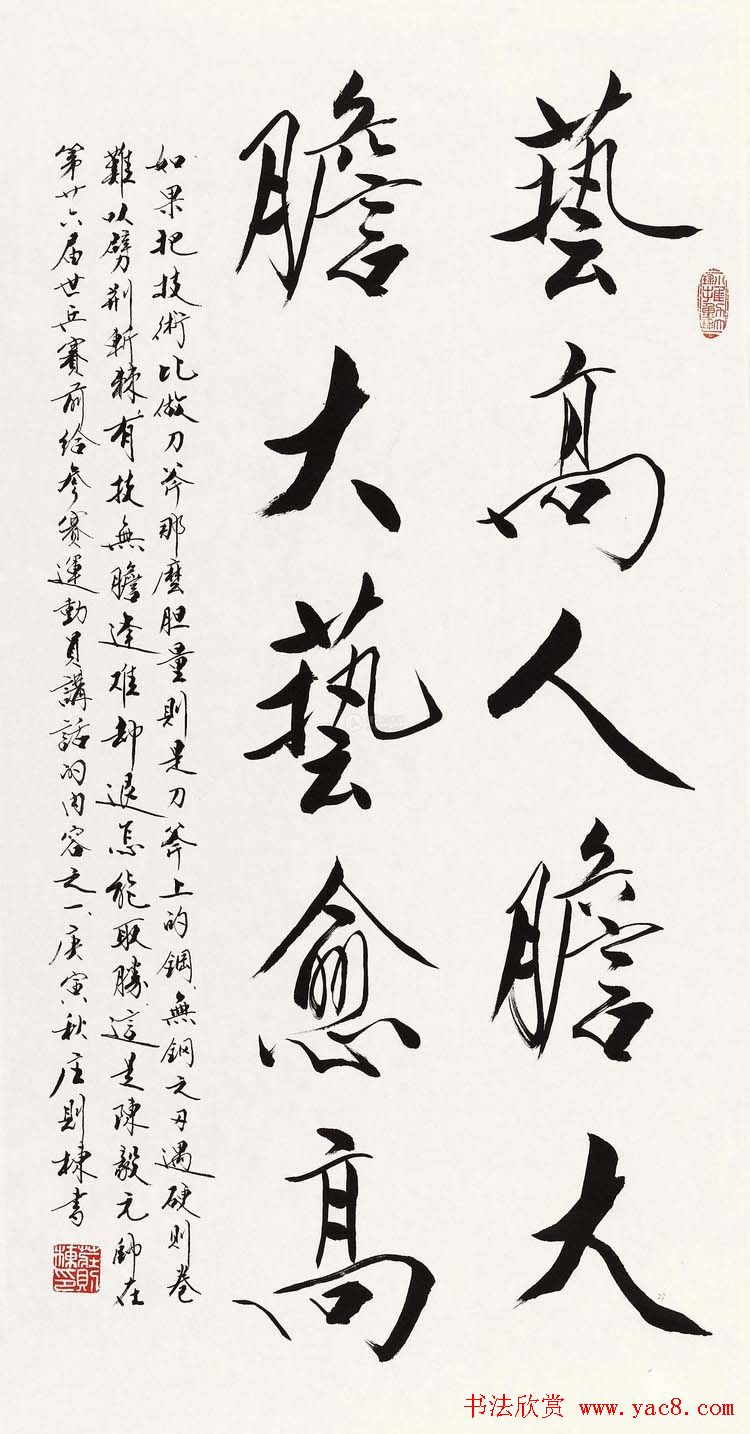 藝高人膽大
膽大藝愈高
如果把技術比做刀斧那麼胆量則是刀斧上的鋼無鋼之刃遇硬則卷
難以劈荆斬棘有技無膽逢难却退怎能取勝這是陳毅元帥在
第廿六届世乒賽前给参賽運動員講話的内容之一庚寅秋庄則棟书
莊則棟印
书法欣赏 www.yac8.com